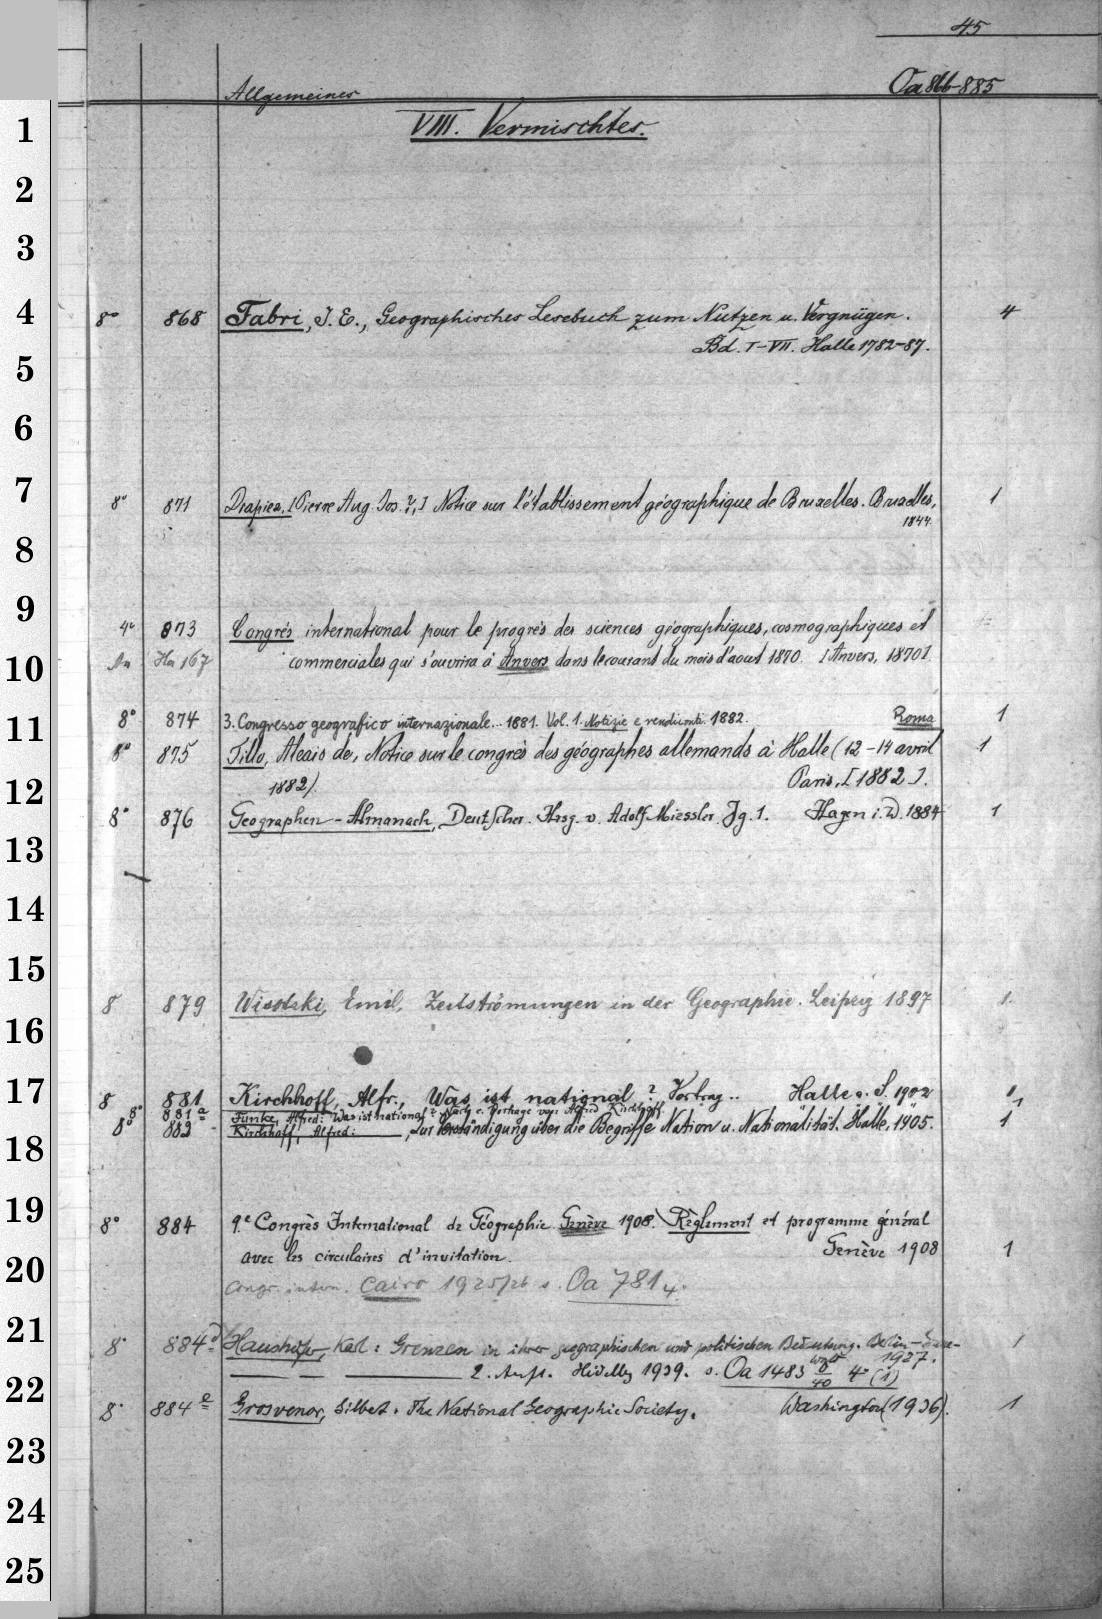 45
Allgemeines Oa 866-885
VIII. Vermischtes.
1
2
3
4 8° 868 Fabri, J. E., Geographisches Lesebuch zum Nutzen u. Vergnügen. 4
Bd. I-VII. Halle 1782-87.
5
6
7 8° 871 Drapiez, [Pierre Aug. Jos. ?,] Notice sur l'établissement géographique de Bruxelles. Bruxelles, 1
1844.
8
9 4° 873 Congrès international pour le progrès des sciences géographiques, cosmographiques et
10 Ha 167 commerciales qui s'ouvrira à Anvers dans le courant du mois d'aout 1870. [Anvers, 1870]
11 8° 874 3. Congresso geografico internazionale.. 1881. Vol. 1. Notizie e rendiconti. 1882. Roma 1
8° 875 Tillo, Alexis de, Notice sur le congrès des géographes allemands à Halle (12-14 avril 1
12 1882). Paris, [1882].
8° 876 Geographen-Almanach, Deutscher. Hrsg. v. Adolf Miessler. Jg. 1. Hagen i. W. 1884 1
13
14
15
8 879 Wisotzki, Emil, Zeitströmungen in der Geographie. Leipzig 1897 1.
16
17 8 881 Kirchhoff, Alfr., Was ist national? Vortrag.. Halle a. S. 1902 1
8° 881a Funke, Alfred: Was ist national? Nach e. Vortrage von Alfred Kirchhoff. 1
8° 882 Kirchhoff, Alfred: , Zur Verständigung über die Begriffe Nation u. Nationalität. Halle, 1905. 1
18
19 8° 884 9.e Congrès International de Géographie Genève 1908. Règlement et programme général
avec les circulaires d'invitation. Genève 1908 1
20 Congr. intern. Cairo 1925/26 s. Oa 781 4.
21 8° 884d Haushofer, Karl: Grenzen in ihrer geographischen und politischen Bedeutung. Berlin- 1
1927.
2. Aufl. Heidelbg 1939. s. Oa 1483 40 4° (1)
22 8° 884e Grosvenor, Gilbert. The National Geographic Society. Washington (1936). 1
23
24
25